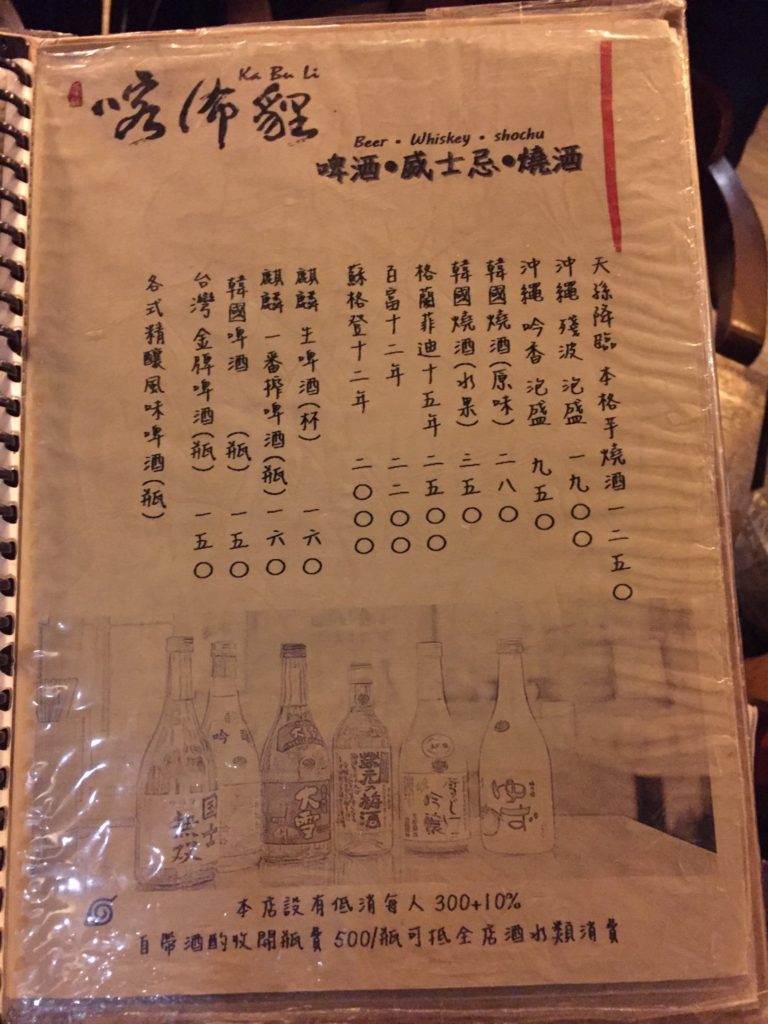 Ka Bu Li
喀佈貍
Beer • Whiskey • shochu
啤酒•威士忌•燒酒
天孫降臨 本格芋燒酒 一二五〇
沖繩 殘波 泡盛 一九〇〇
沖繩 吟香 泡盛 九五〇
韓國燒酒(原味) 二八〇
韓國燒酒(水果) 三五〇
格蘭菲迪十五年 二五〇〇
百富十二年 二二〇〇
蘇格登十二年 二〇〇〇
麒麟 生啤酒(杯) 一六〇
麒麟 一番搾啤酒(瓶) 一六〇
韓國啤酒 (瓶) 一五〇
台灣 金牌啤酒(瓶) 一五〇
各式精釀風味啤酒(瓶)
国士
無双
吟
大雪
蔵元の梅酒
ゆず
本店設有低消每人 300+10%
自帶酒酌收開瓶費 500/瓶可抵全店酒水類消費